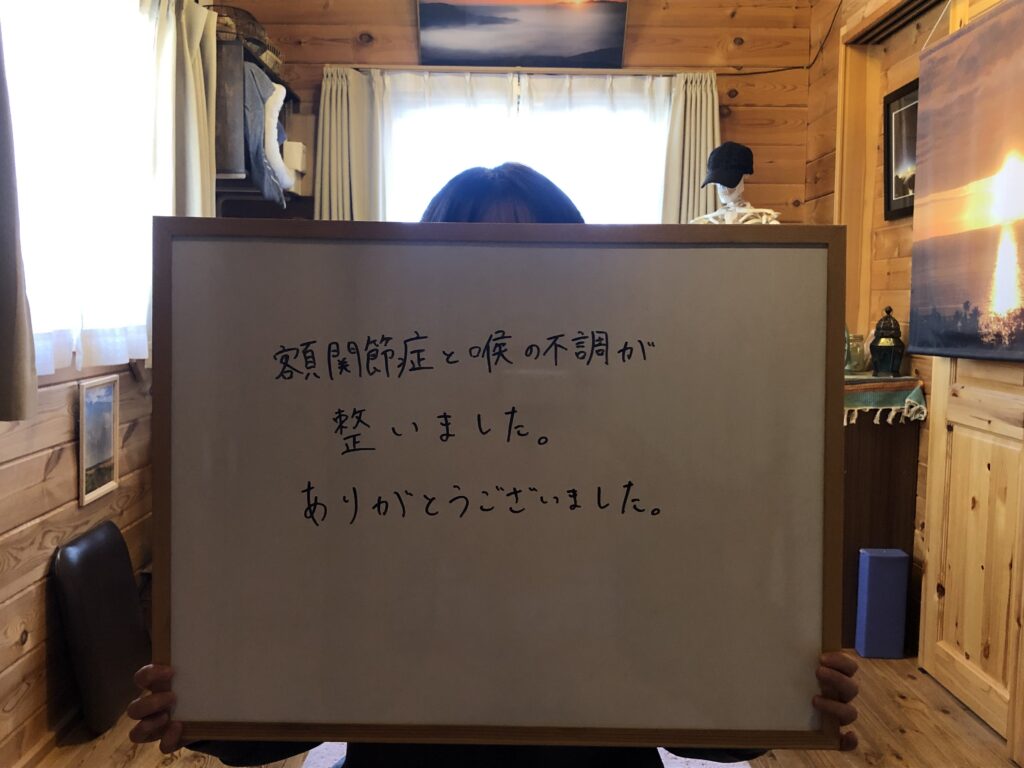 額関節症と喉の不調が
整いました。
ありがとうございました。